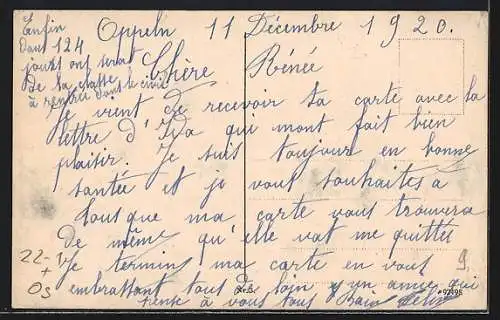 Oppeln 11 Décembre 1920.
Enfin
dans 124
jours ont serat
de la classe
à rentrer dans le civil
Chère Rénée
Je vient de recevoir ta carte avec la
lettre d'Ida qui mont fait bien
plaisir. Je suis toujour en bonne
santée et je vous souhaites a
tous que ma carte vous trouvera
de même qu'elle vat me quitté
Je termine ma carte en vous
embrassant tous de loin y un amie qui
pense à vous tous
22-1
+
Os
9.
92498